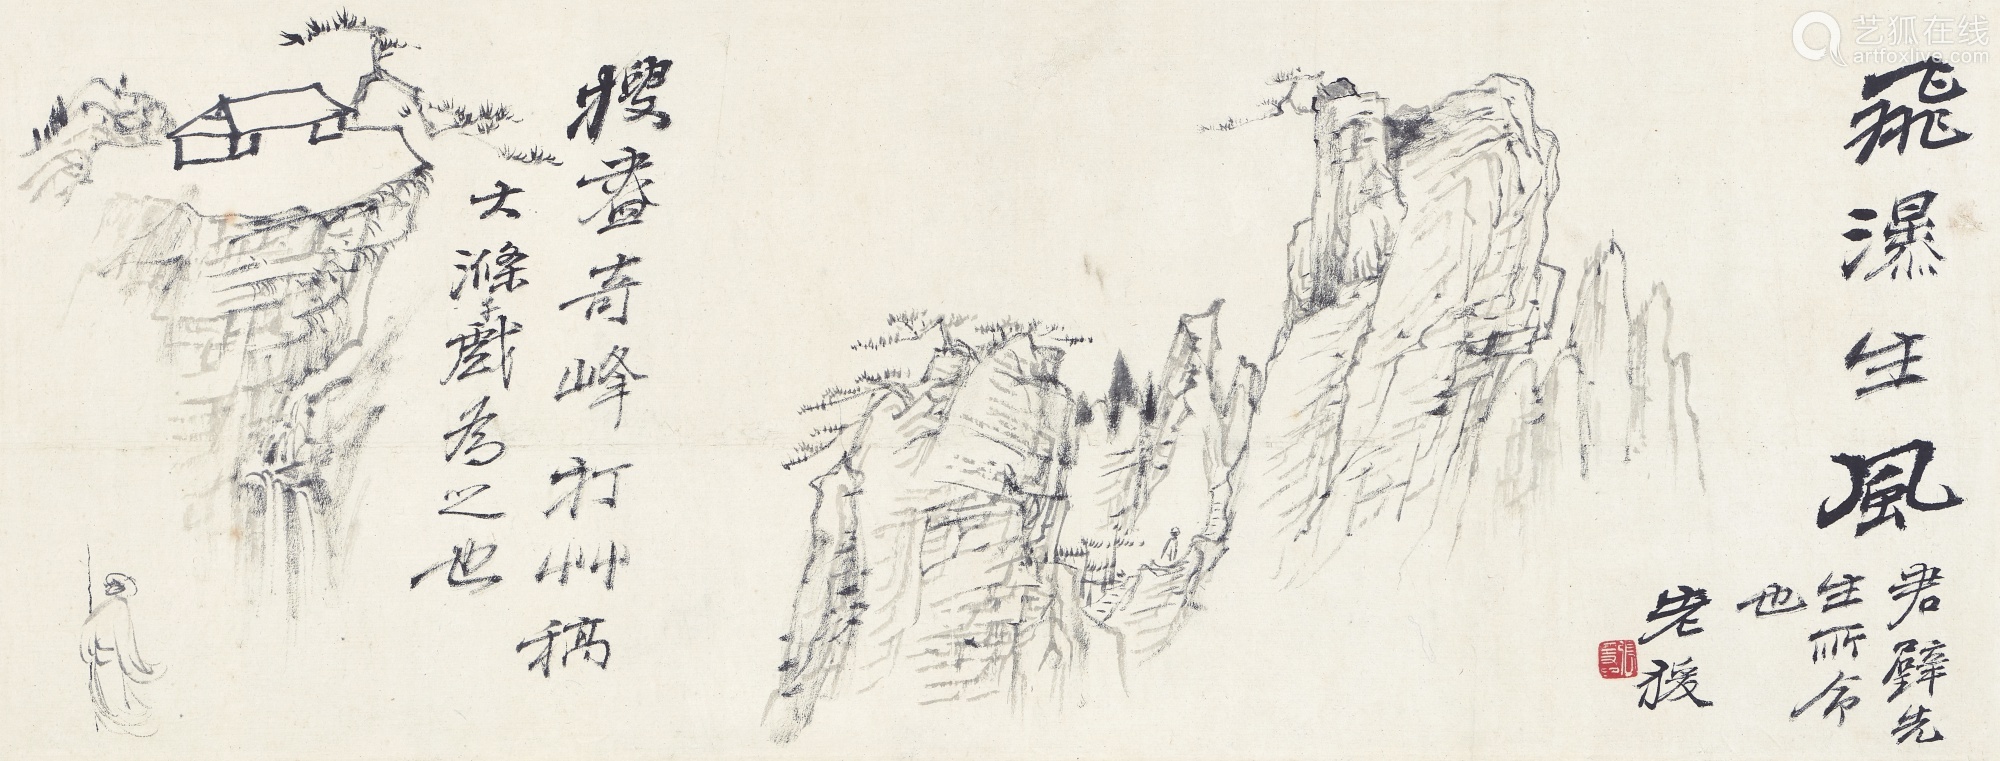 飛瀑生風
君璧先
生所命
也
老援
張爰
搜盡奇峰打艸稿
大滌子戲為之也
艺狐在线
artfoxlive.com